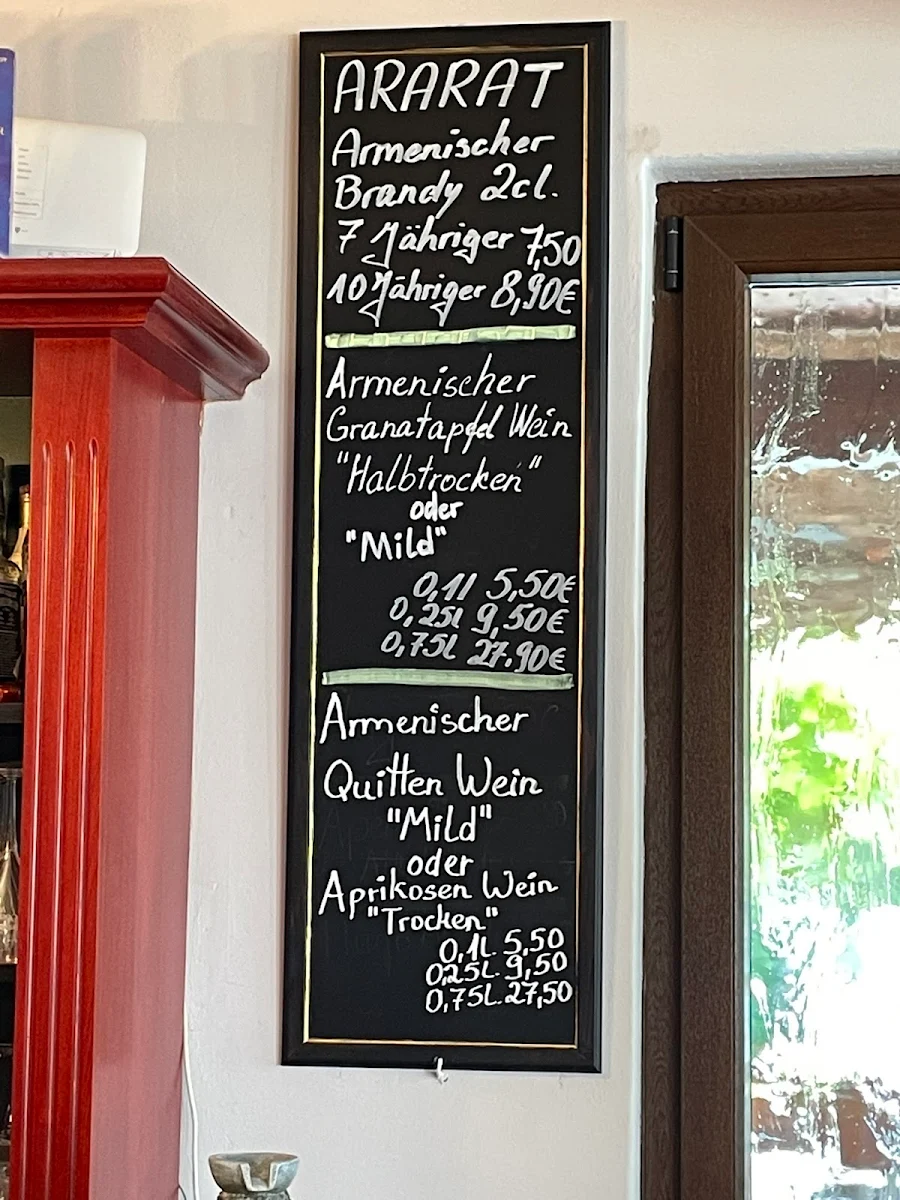 ARARAT
Armenischer
Brandy 2cl.
7 Jähriger 7,50
10 Jähriger 8,90€
Armenischer
Granatapfel Wein
"Halbtrocken"
oder
"Mild"
0,1l 5,50€
0,25l 9,50€
0,75L 27.90€
Armenischer
Quitten Wein
"Mild"
oder
Aprikosen Wein
"Trocken"
0,1L. 5,50
0,25L. 9,50
0,75L. 27,50